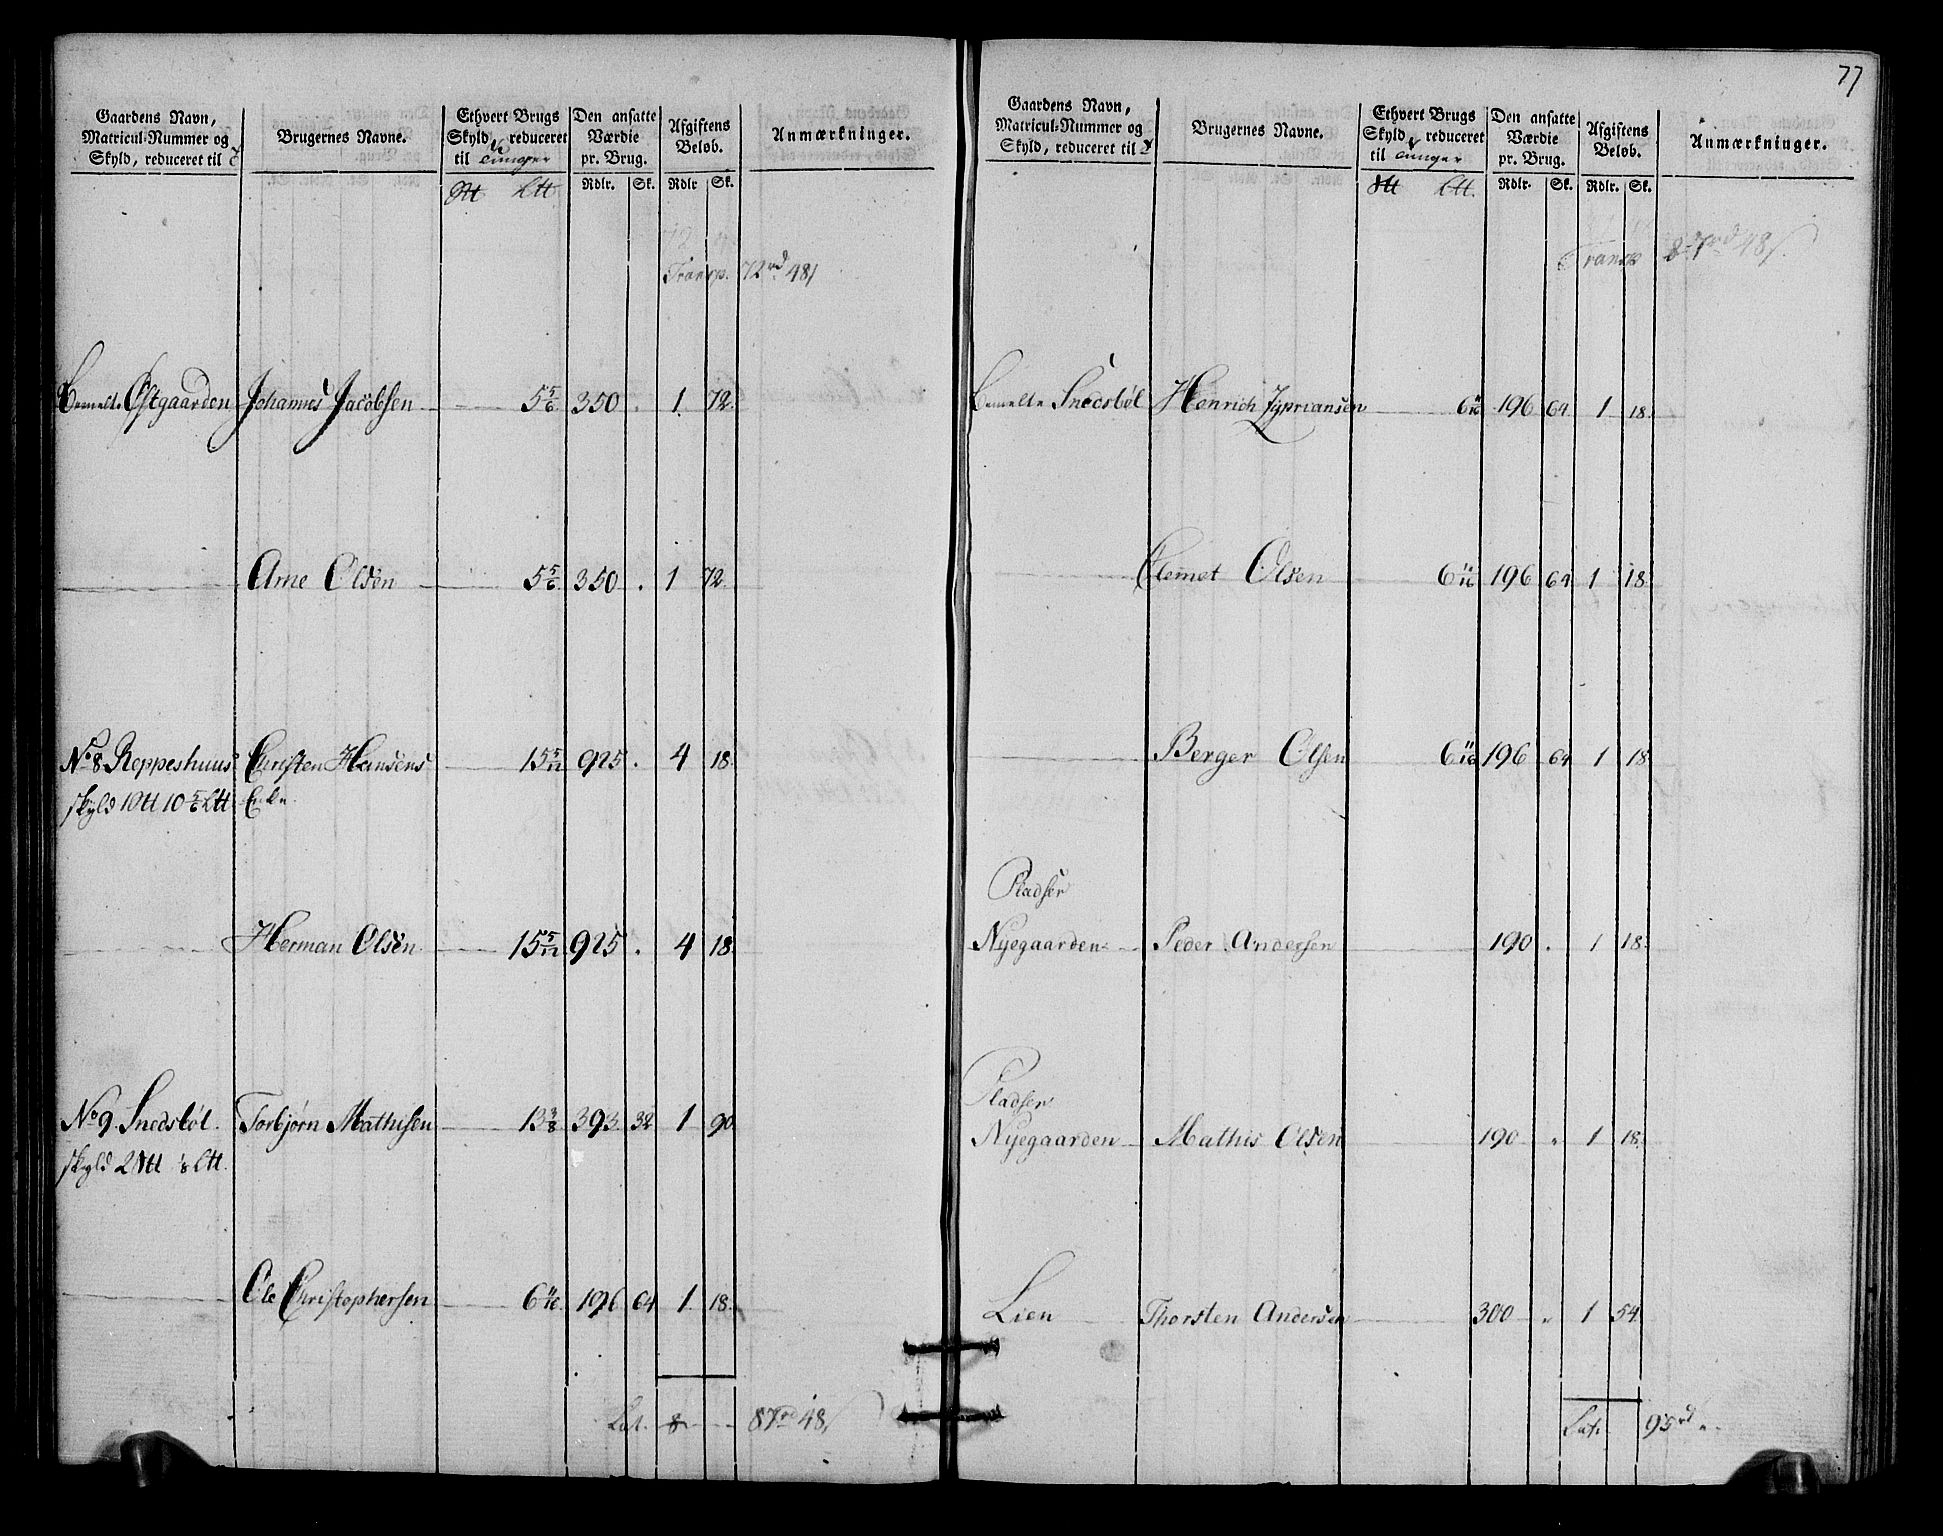 77
Gaardens Navn, Matricul-Nummer og Skyld, reduceret til
Brugernes Navne.
Ethvert Brugs Skyld, reduceret til Tunger
Den ansatte Værdie pr. Brug.
Afgiftens Beløb.
Anmærkninger.
Ltt Rdlr. Sk. Rdlr Sk.
Transp. 72 rd 48
Bemelte Østgaarden Johannes Jacobsen 5 5/6 350 . 1 72.
Arne Olsen 5 5/6 350 . 1 72.
No 8 Reppeshuus Christen Hansens 15 5/12 925 . 4 18.
skyld 1 Ott 10 5/6 Ltt Enke
Herman Olsen 15 5/12 925 . 4 18.
No 9. Snedsbøl. Torbjørn Mathisen 13 3/8 393 32 1 90
skyld 2 Ott 1/8 Ltt.
Ole Christophersen 6 11/16 196 64 1 18.
Lat. 87 rd 48
Gaardens Navn, Matricul-Nummer og Skyld, reduceret til
Brugernes Navne.
Ethvert Brugs Skyld, reduceret til Tunger
Den ansatte Værdie pr. Brug.
Afgiftens Beløb.
Anmærkninger.
Ltt. Rdlr. Sk. Rdlr. Sk.
Transp 87 rd 48
Bemelte Snedsbøl Henrich Zypriansen 6 11/16 196 64 1 18.
Clemet Olsen 6 11/16 196 64 1 18
Berger Olsen 6 11/16 196 64 1 18
Pladser
Nyegaarden Peder Andersen 190 . 1 18.
Pladser
Nyegaarden Mathis Olsen 190 " 1 18.
Lien Thorsten Andersen 300 " 1 54.
Lat. 95 rd "